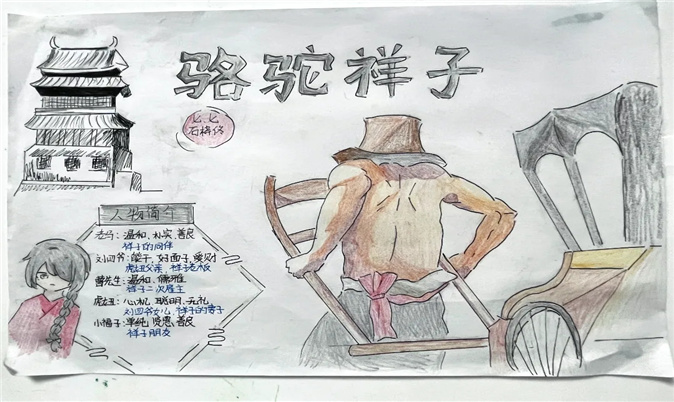 骆驼祥子
七.七
人物简介
老马：温和、朴实、善良
祥子的同伴
刘四爷：能干、好面子、爱财
虎妞父亲、祥子老板
曹先生：温和、儒雅
祥子二次雇主
虎妞：心机、聪明、无礼
刘四爷女儿、祥子的妻子
小福子：单纯、贤惠、善良
祥子朋友